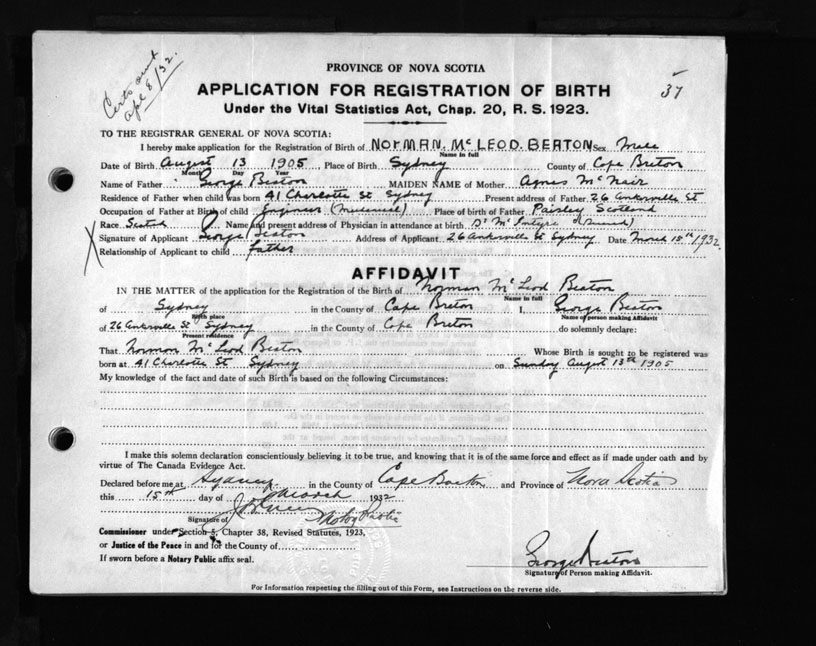 Certs sent
Apl 8/32.
37
PROVINCE OF NOVA SCOTIA
APPLICATION FOR REGISTRATION OF BIRTH
Under the Vital Statistics Act, Chap. 20, R. S. 1923.
TO THE REGISTRAR GENERAL OF NOVA SCOTIA:
I hereby make application for the Registration of Birth of NORMAN. Mc LEOD. BEATON Sex Male
Name in full
Date of Birth August 13 1905 Place of Birth Sydney County of Cape Breton
Month Day Year
Name of Father George Beaton MAIDEN NAME of Mother Agnes McNair
Residence of Father when child was born 41 Charlotte St Sydney Present address of Father 26 St
Occupation of Father at Birth of child Engineer Place of birth of Father Paisley Scotland
Race Scotch Name and present address of Physician in attendance at birth Dr McIntyre
Signature of Applicant George Beaton Address of Applicant 26 St Sydney Date March 15th/1932
Relationship of Applicant to child father
AFFIDAVIT
IN THE MATTER of the application for the Registration of the Birth of Norman McLeod Beaton
Name in full
of Sydney in the County of Cape Breton I, George Beaton
Birth place Name of person making Affidavit
of 26 St Sydney in the County of Cape Breton do solemnly declare:
Present residence
That Norman McLeod Beaton Whose Birth is sought to be registered was
born at 41 Charlotte St Sydney on Sunday August 13th 1905
My knowledge of the fact and date of such Birth is based on the following Circumstances:
I make this solemn declaration conscientiously believing it to be true, and knowing that it is of the same force and effect as if made under oath and by
virtue of The Canada Evidence Act.
Declared before me at Sydney in the County of Cape Breton and Province of Nova Scotia
this 15th day of March 1932
Signature of Notary Public
Commissioner under Section 5, Chapter 38, Revised Statutes, 1923,
or Justice of the Peace in and for the County of
If sworn before a Notary Public affix seal.
George Beaton
Signature of Person making Affidavit.
For Information respecting the filling out of this Form, see Instructions on the reverse side.